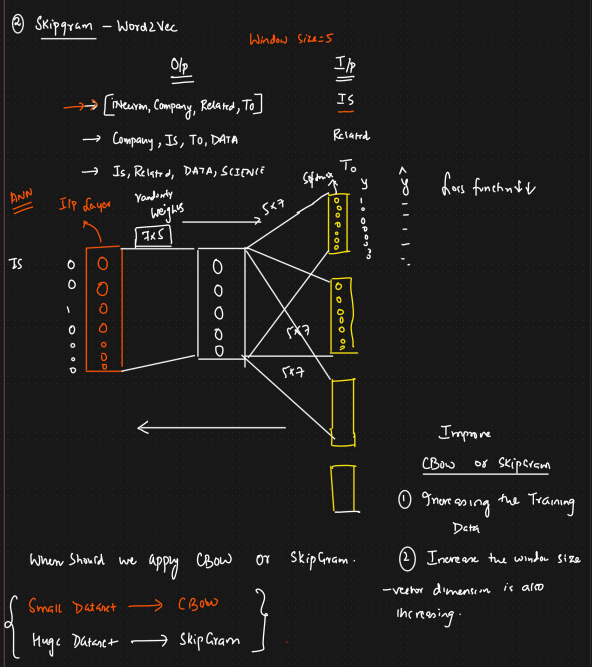 ② Skipgram - Word2Vec
Window Size=5
O/p I/p
→ [iNeuron, Company, Related, To] IS
→ Company, IS, TO, DATA Related
→ Is, Related, DATA, SCIENCE To
ANN
I/p Layer
randomly
weights
7x5
5x7
softmax
y ŷ
Loss function ↓↓
IS
0 0 1 0 0 0 0
1 0 0 0 0 0 0
5x7
5x7
Improve
CBow or SkipGram
① Increasing the Training
Data
② Increase the window size
-vector dimension is also
increasing.
When Should we apply CBow or SkipGram.
Small Dataset → CBow
Huge Dataset → SkipGram